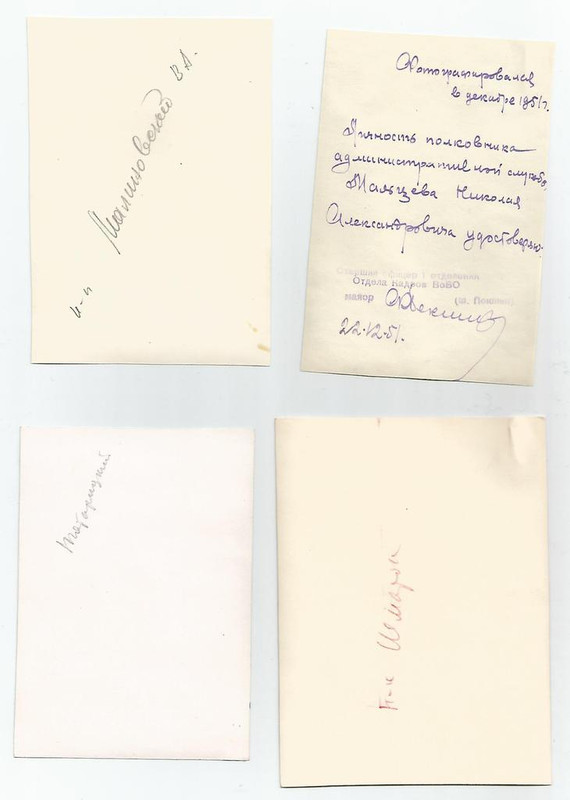 Малиновский В.А.
Фотографировался
в декабре 1951 г.
Личность полковника
административной службы
Мальцева Николая
Александровича удостоверяю.
Старший офицер 1 отделения
Отдела Кадров ВоВО
майор
22.12.51.